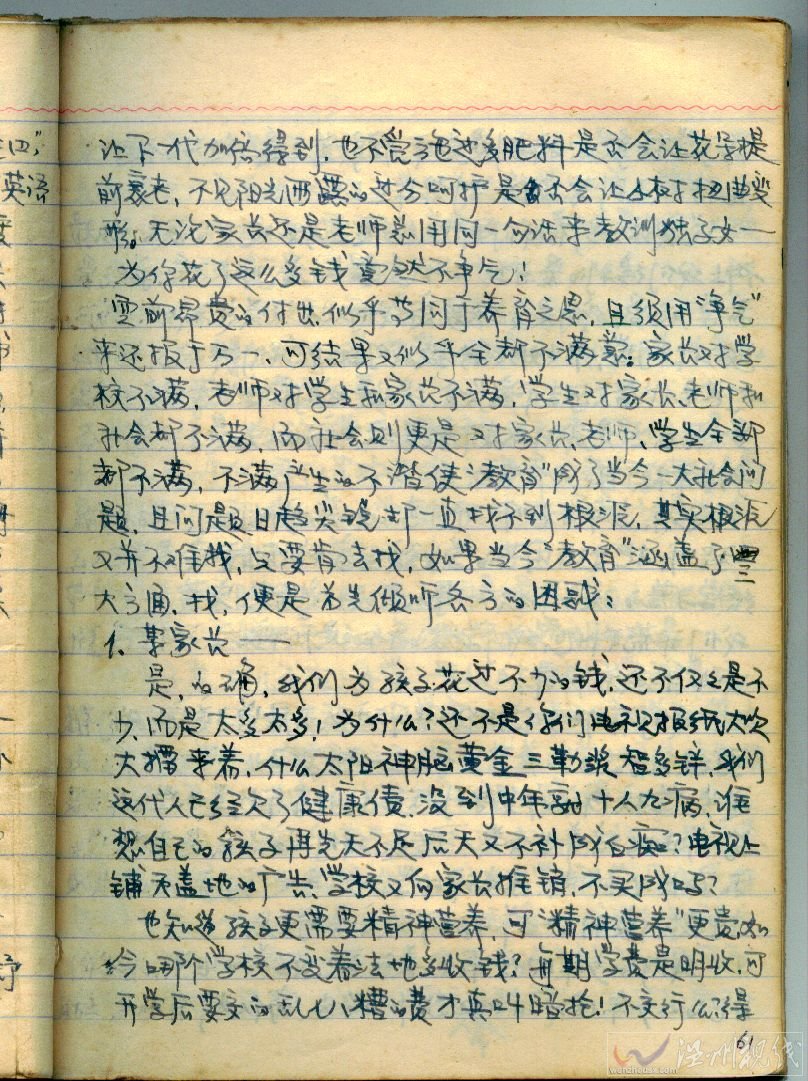 四，
英语
让下一代加倍得到，也不管施过多肥料是否会让花早提
前衰老，不见阳光雨露的过分呵护是否会让小树扭曲变
形。无论家长还是老师总用同一句话来教训独子女——
为你花了这么多钱竟然不争气！
空前昂贵的付出，似乎等同于养育之恩，且须用“争气”
来还报于万一，可结果又似乎全都不满意。家长对学
校不满，老师对学生和家长不满，学生对家长、老师和
社会都不满，而社会则更是对家长、老师、学生全部
都不满，不满产生的不谐使“教育”成了当今一大社会问
题，且问题日趋尖锐却一直找不到根源，其实根源
又并不难找，只要肯去找，如果当今“教育”涵盖了三
大方面，找，便是首先倾听各方的困惑：
1、某家长——
是，的确，我们为孩子花过不少的钱，还不仅仅是不
少，而是太多太多！为什么？还不是你们电视报纸大吹
大擂来着，什么太阳神脑黄金三勒浆智多鲜，我们
这代人已经欠了健康债，没到中年就十人九病，谁
想自己的孩子再先天不足后天又不补成白痴？电视上
铺天盖地的广告、学校又向家长推销，不买成吗？
也知道孩子更需要精神营养，可“精神营养”更贵，如
今哪个学校不变着法地多收钱？每期学费是明收，可
开学后要交的乱七八糟的费才真叫暗抢！不交行么？得
61
温州视线
wenzhousx.com